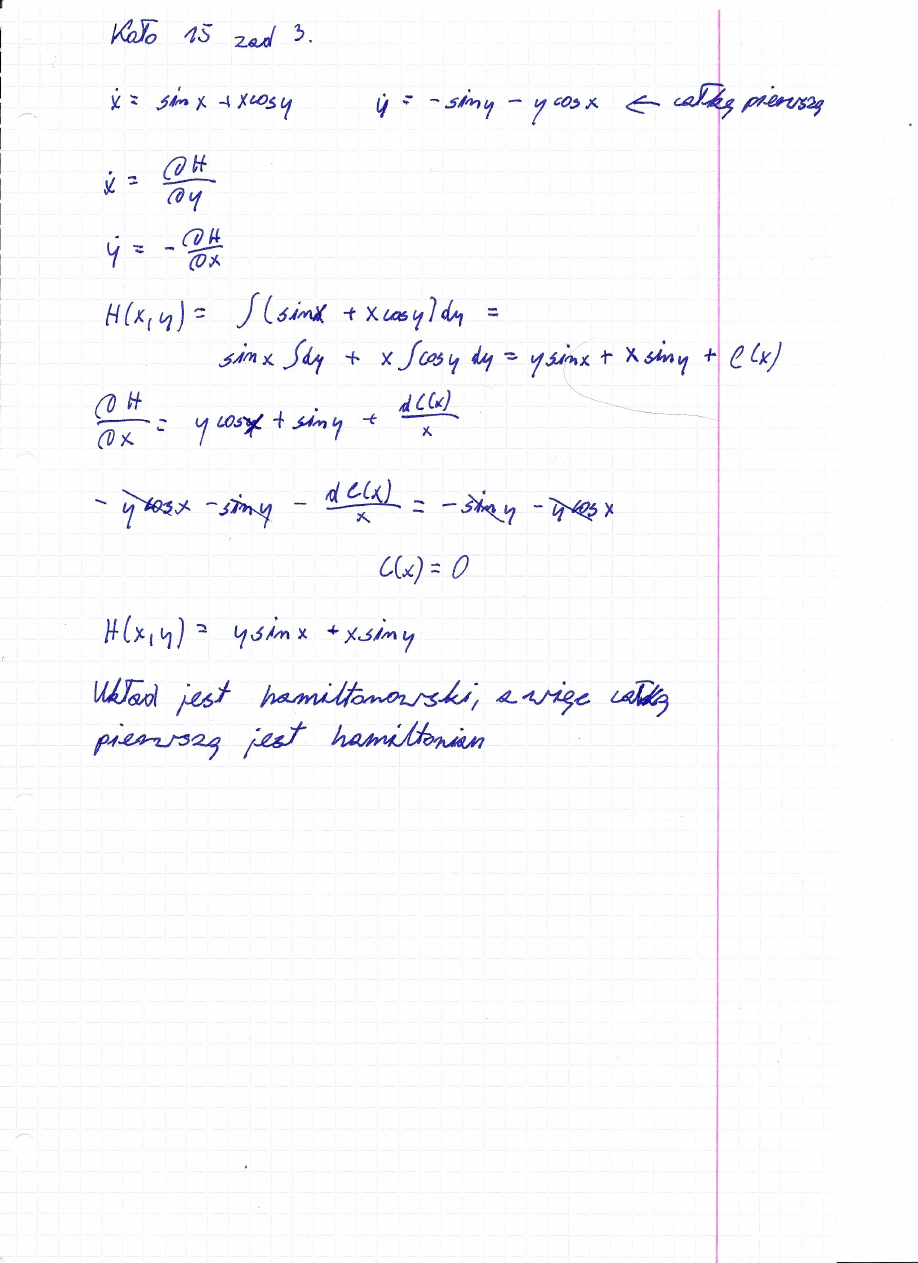 Koło 15 zad 3.
ẋ = sin x + x cos y    ẏ = - sin y - y cos x ← całkę pierwszą
ẋ = ∂H/∂y
ẏ = - ∂H/∂x
H(x,y) = ∫(sin x + x cos y) dy =
sin x ∫dy + x ∫cos y dy = y sin x + x sin y + C(x)
∂H/∂x = y cos x + sin y + dC(x)/x
- y cos x - sin y - dC(x)/x = - sin y - y cos x
C(x) = 0
H(x,y) = y sin x + x sin y
Układ jest hamiltonowski, a więc całką
pierwszą jest hamiltonian